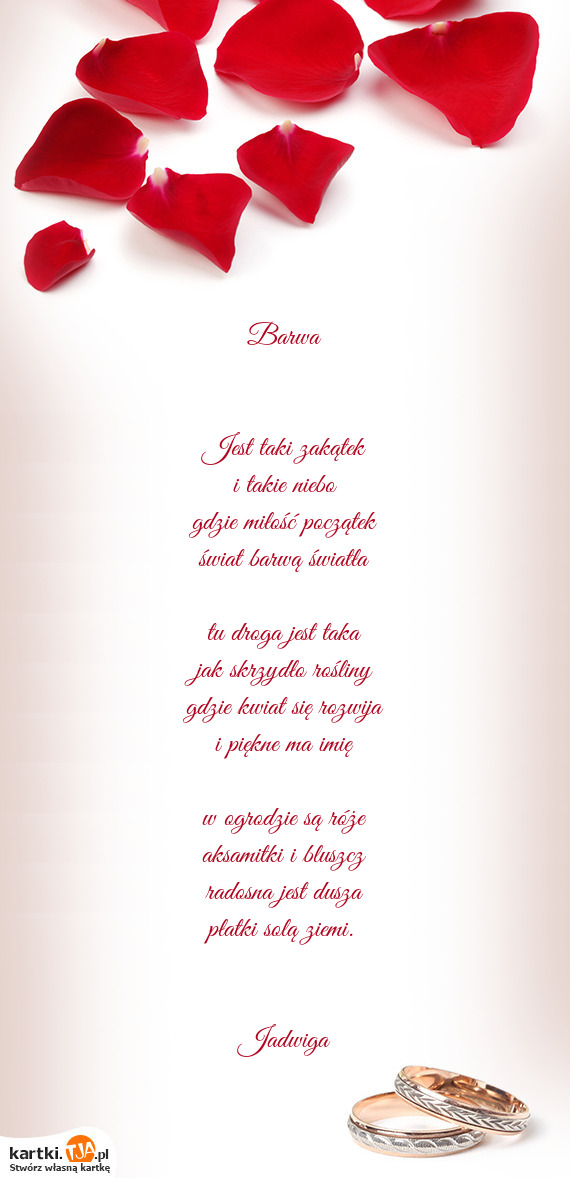 Barwa
Jest taki zakątek
i takie niebo
gdzie miłość początek
świat barwą światła
tu droga jest taka
jak skrzydło rośliny
gdzie kwiat się rozwija
i piękne ma imię
w ogrodzie są róże
aksamitki i bluszcz
radosna jest dusza
płatki solą ziemi.
Jadwiga
kartki.TJA.pl
Stwórz własną kartkę